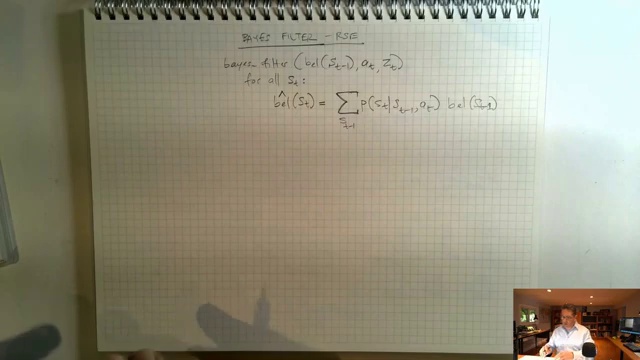 BAYES FILTER - RSE
bayes_filter (bel(S_{t-1}), a_t, Z_t)
for all S_t:
b\hat{e}l(S_t) = \sum_{S_{t-1}} P(S_t | S_{t-1}, a_t) bel(S_{t-1})